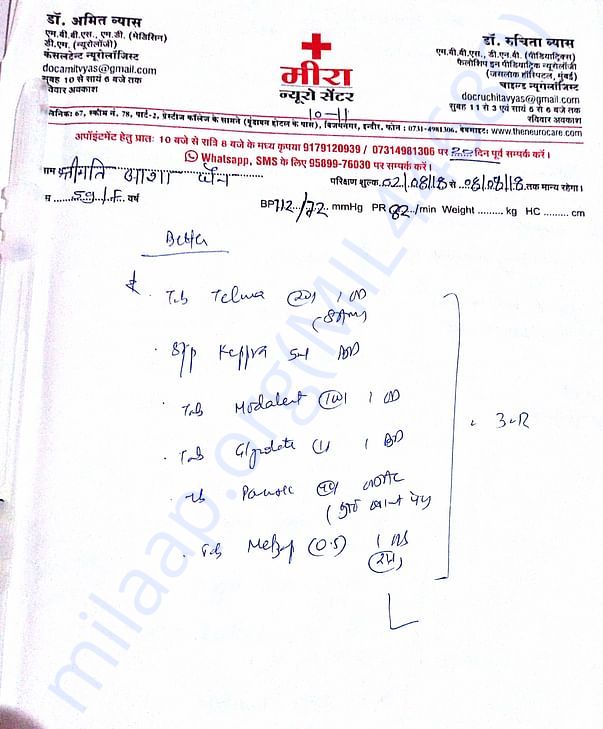 डॉ. अमित व्यास
एम.बी.बी.एस., एम.डी. (मेडिसिन)
डी.एम. (न्यूरोलॉजी)
कंसलटेन्ट न्यूरोलॉजिस्ट
docamitvyas@gmail.com
सुबह 10 से सायं 6 बजे तक
वार अवकाश
मीरा
न्यूरो सेंटर
10-11
डॉ. रुचिता व्यास
एम.बी.बी.एस., डी.एन.बी. (पीडियाट्रिक्स)
फैलोशिप इन पीडियाट्रिक न्यूरोलॉजी
(जसलोक हॉस्पिटल, मुंबई)
चाइल्ड न्यूरोलॉजिस्ट
docruchitavyas@gmail.com
सुबह 11 से 3 एवं सायं 6 से 6 बजे तक
रविवार अवकाश
67, स्कीम नं. 78, पार्ट-2, प्रेस्टीज कॉलेज के सामने (वृंदावन होटल के पास), विजयनगर, इन्दौर, फोन : 0731-4981306, वेबसाइट: www.theneurocare.com
अपॉइंटमेंट हेतु प्रातः 10 बजे से रात्रि 8 बजे के मध्य कृपया 9179120939 / 07314981306 पर दिन पूर्व सम्पर्क करें।
Whatsapp, SMS के लिए 95099-76030 पर सम्पर्क करें।
नाम श्रीमति आशा जैन परीक्षण शुल्क 02/08/18 से 08/08/18 तक मान्य रहेगा।
59/F वर्ष BP 112/72 mmHg PR 82/min Weight ......... kg HC ......... cm
Better
Tab Telma (20) 1 OD
(8AM)
Syp Keppra 5ml BD
Tab Modalert (100) 1 OD
Tab 1 BD
(40)
Tab (0.5) 1
milaap.org